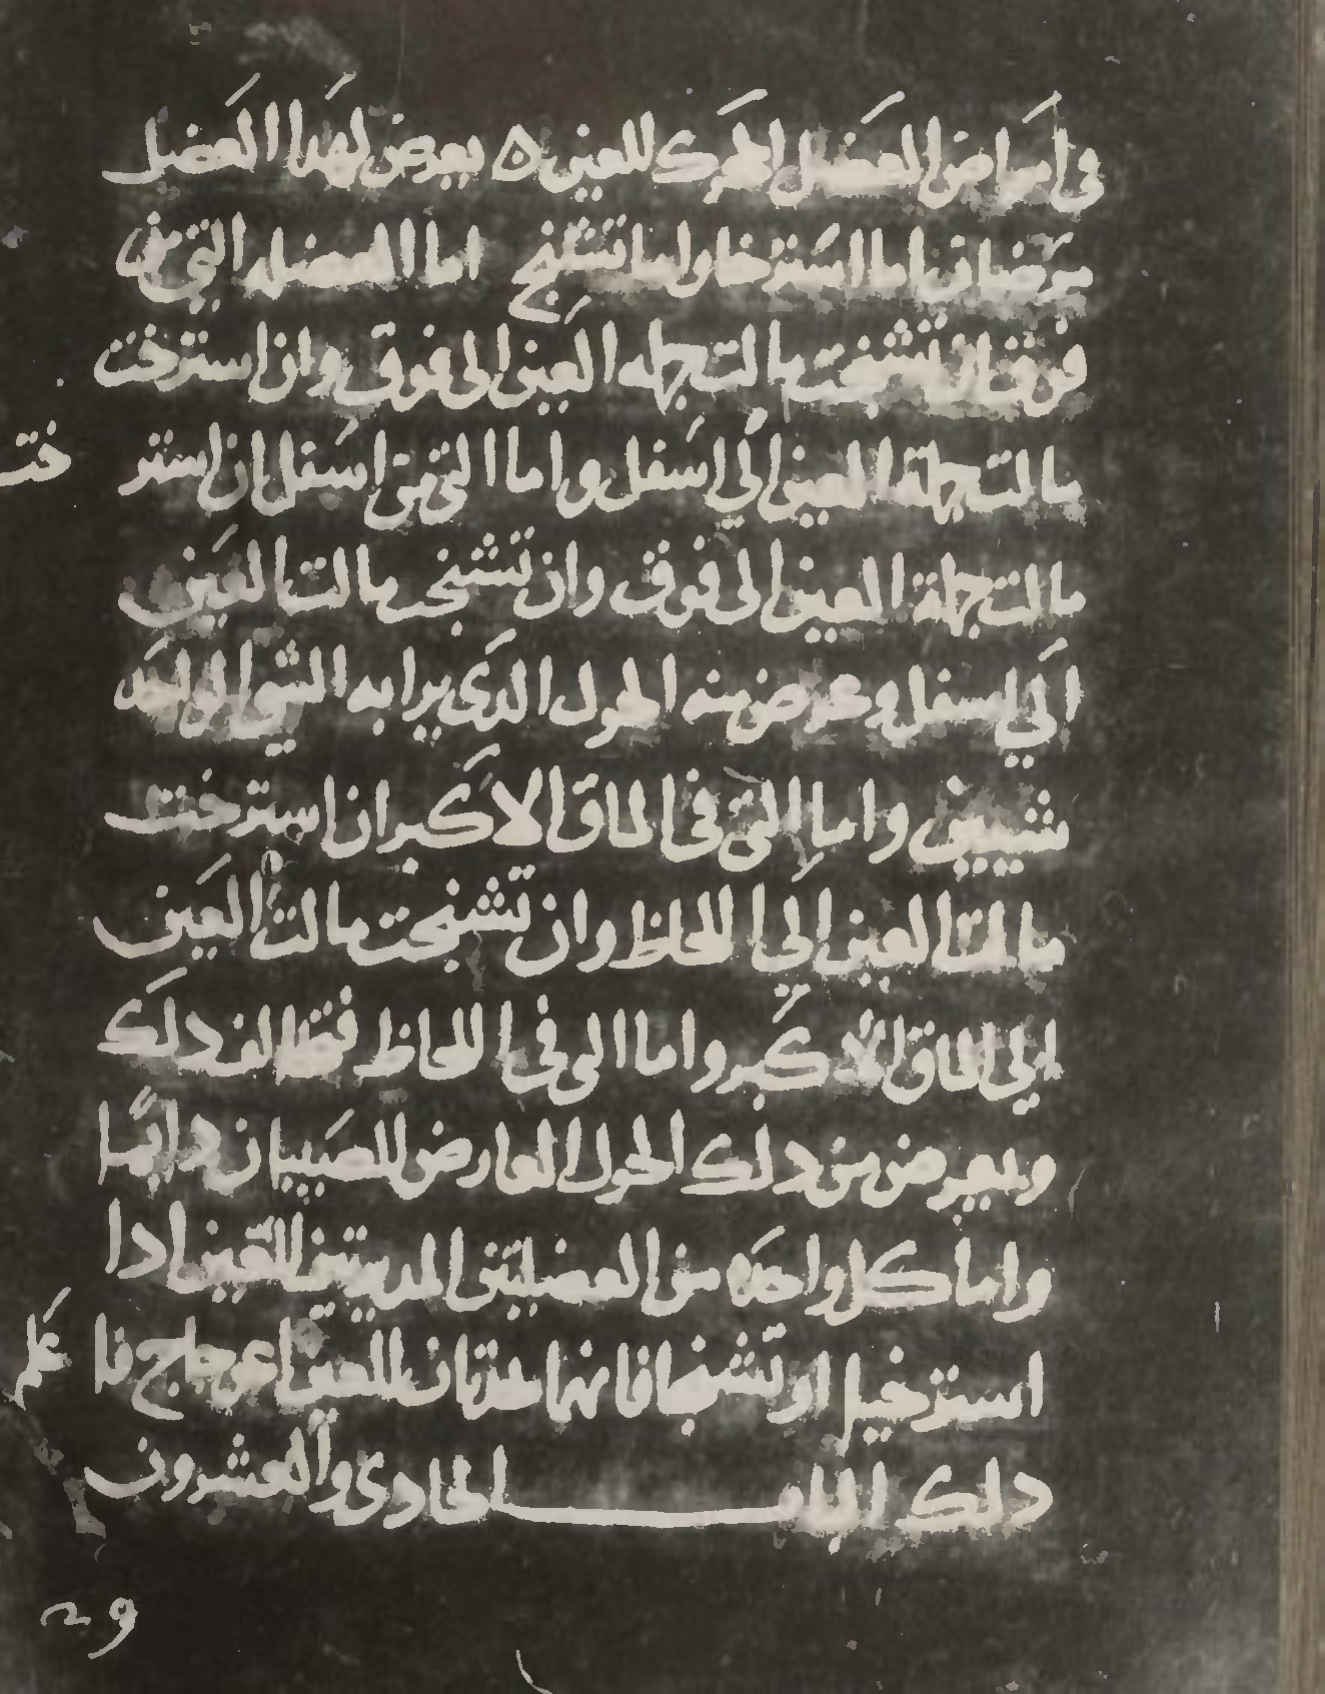 في امراض العضل المحرك للعين ٥ يعرض لهذا العضل
مرضان اما استرخا واما تشنج اما العضله التي من
فوق فان تشنجت مالت جمله العين الى فوق وان استرخت
مالت جملة العين الي اسفل واما التي من اسفل ان استر
خت
مالت جملة العين الى فوق وان تشنجت مالت العين
الي اسفل وعرض منه الحول الدى يرا به الشي
شييين واما التي في الماق الاكبر ان استرخت
مالت العين الي اللحاظ وان تشنجت مالت العين
الي الماق الاكبر واما التى في اللحاظ فتخالف دلك
ويعرض من دلك الحول العارض للصبيان دايما
واما كل واحده من العضلتين المديرتين للعين ادا
استرخيا او تشنجا فانهما يحدثان للعين اعوجاج فا
علم
دلك الباب الحادى والعشرون
29